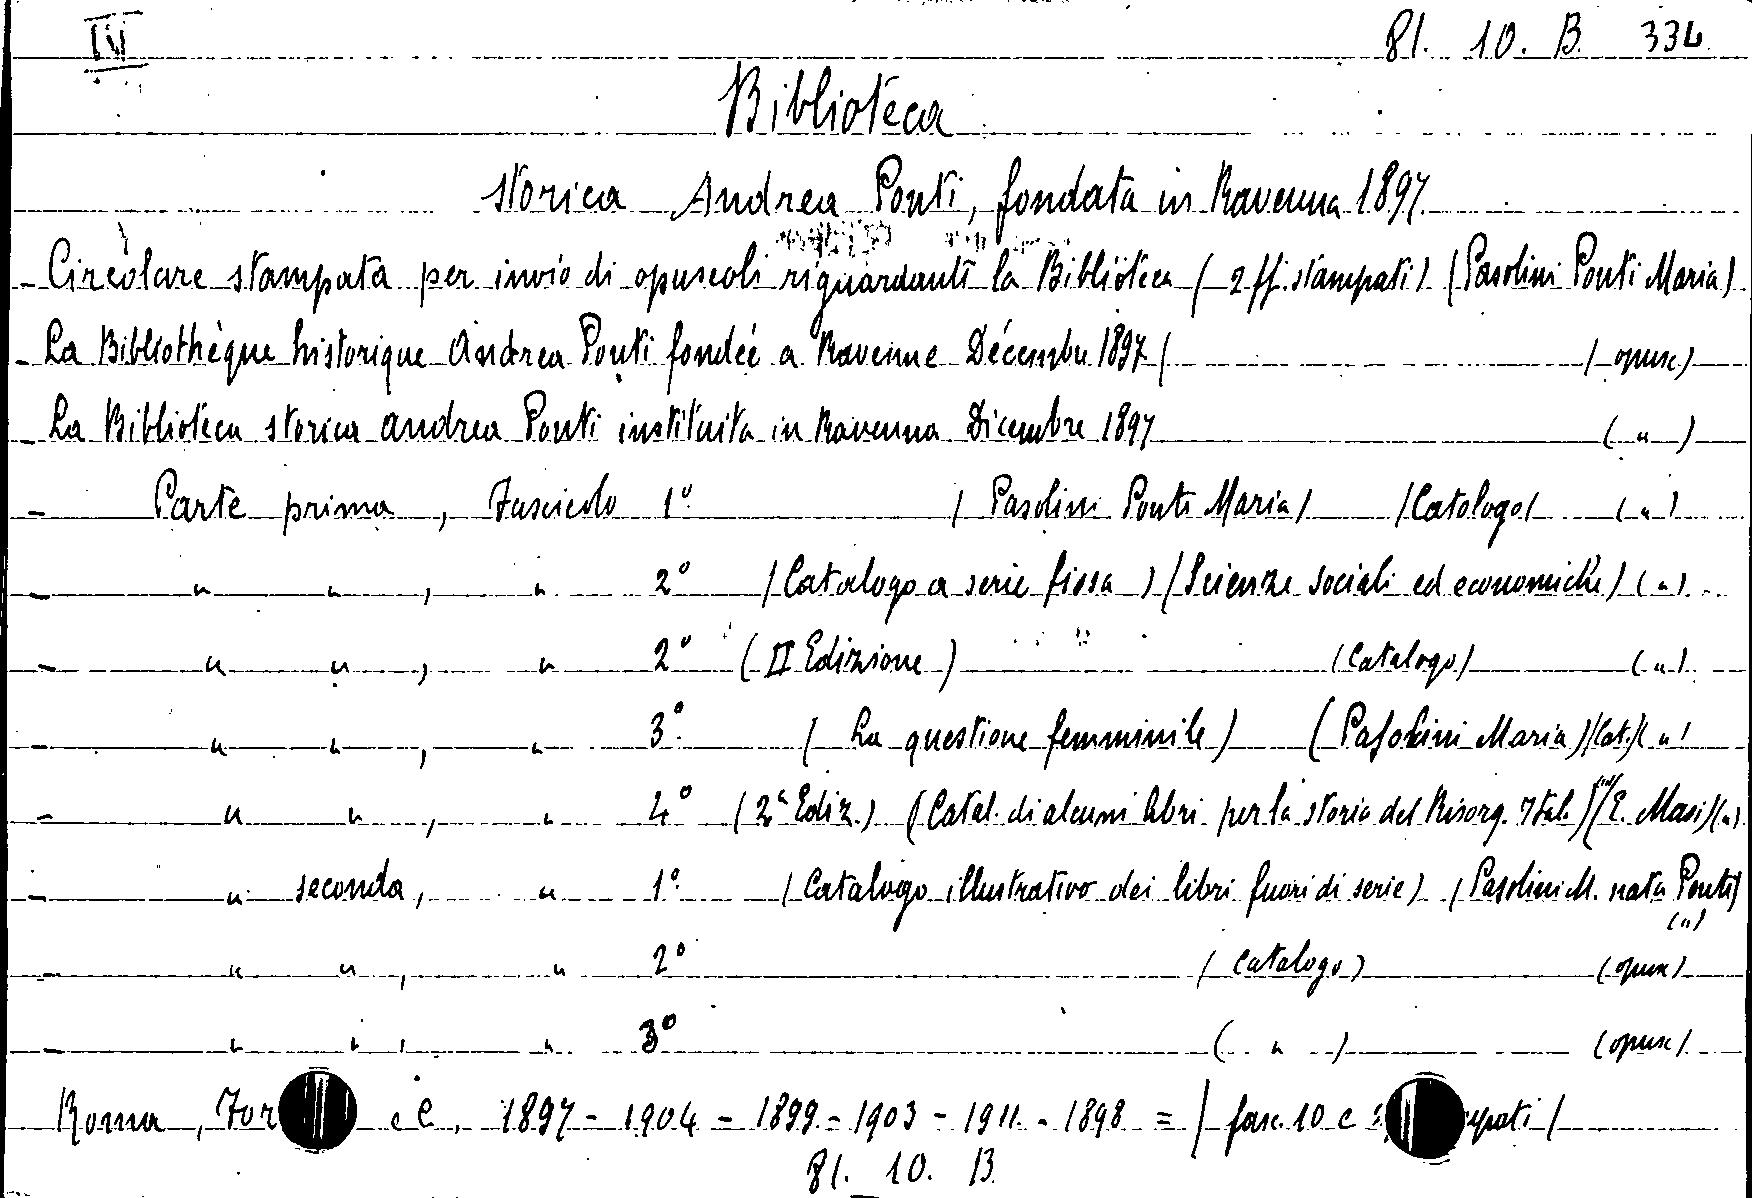 IV 81. 10. B. 334
Biblioteca
storica Andrea Ponti, fondata in Ravenna 1897
- Circolare stampata per invio di opuscoli riguardanti la Biblioteca (2 ff. stampati) (Pasolini Ponti Maria)
- La Bibliothèque historique Andrea Ponti fondée a Ravenne Décembre 1897 ( ) opusc.)
- La Biblioteca storica Andrea Ponti instituita in Ravenna Dicembre 1897 ( " )
- Parte prima, Fascicolo 1° (Pasolini Ponti Maria) (Catologo) ( " )
- " " , " 2° (Catalogo a serie fissa) (Scienze sociali ed economiche) ( " )
- " " , " 2° (II Edizione) (Catalogo) ( " )
- " " , " 3° (La questione femminile) (Pasolini Maria) (Cat.) ( " )
- " " , " 4° (2ª Ediz.) (Catal. di alcuni libri per la storia del Risorg. Ital.) (E. Masi) ( " )
- " seconda, " 1° (Catalogo illustrativo dei libri fuori di serie) (Pasolini M. nata Ponti)
( " )
- " " , " 2° (Catalogo) (opusc)
- " " , " 3° ( " ) (opusc)
Roma, 1897 - 1904 - 1899 - 1903 - 1911 - 1898 = (fasc. 10 e
81. 10. B